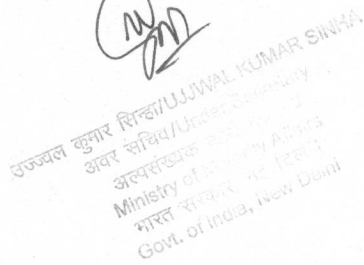 उज्ज्वल कुमार सिन्हा/UJJWAL KUMAR SINHA
अवर सचिव/Under Secretary
अल्पसंख्यक
Ministry of Affairs
भारत सरकार, नई दिल्ली
Govt. of India, New Delhi